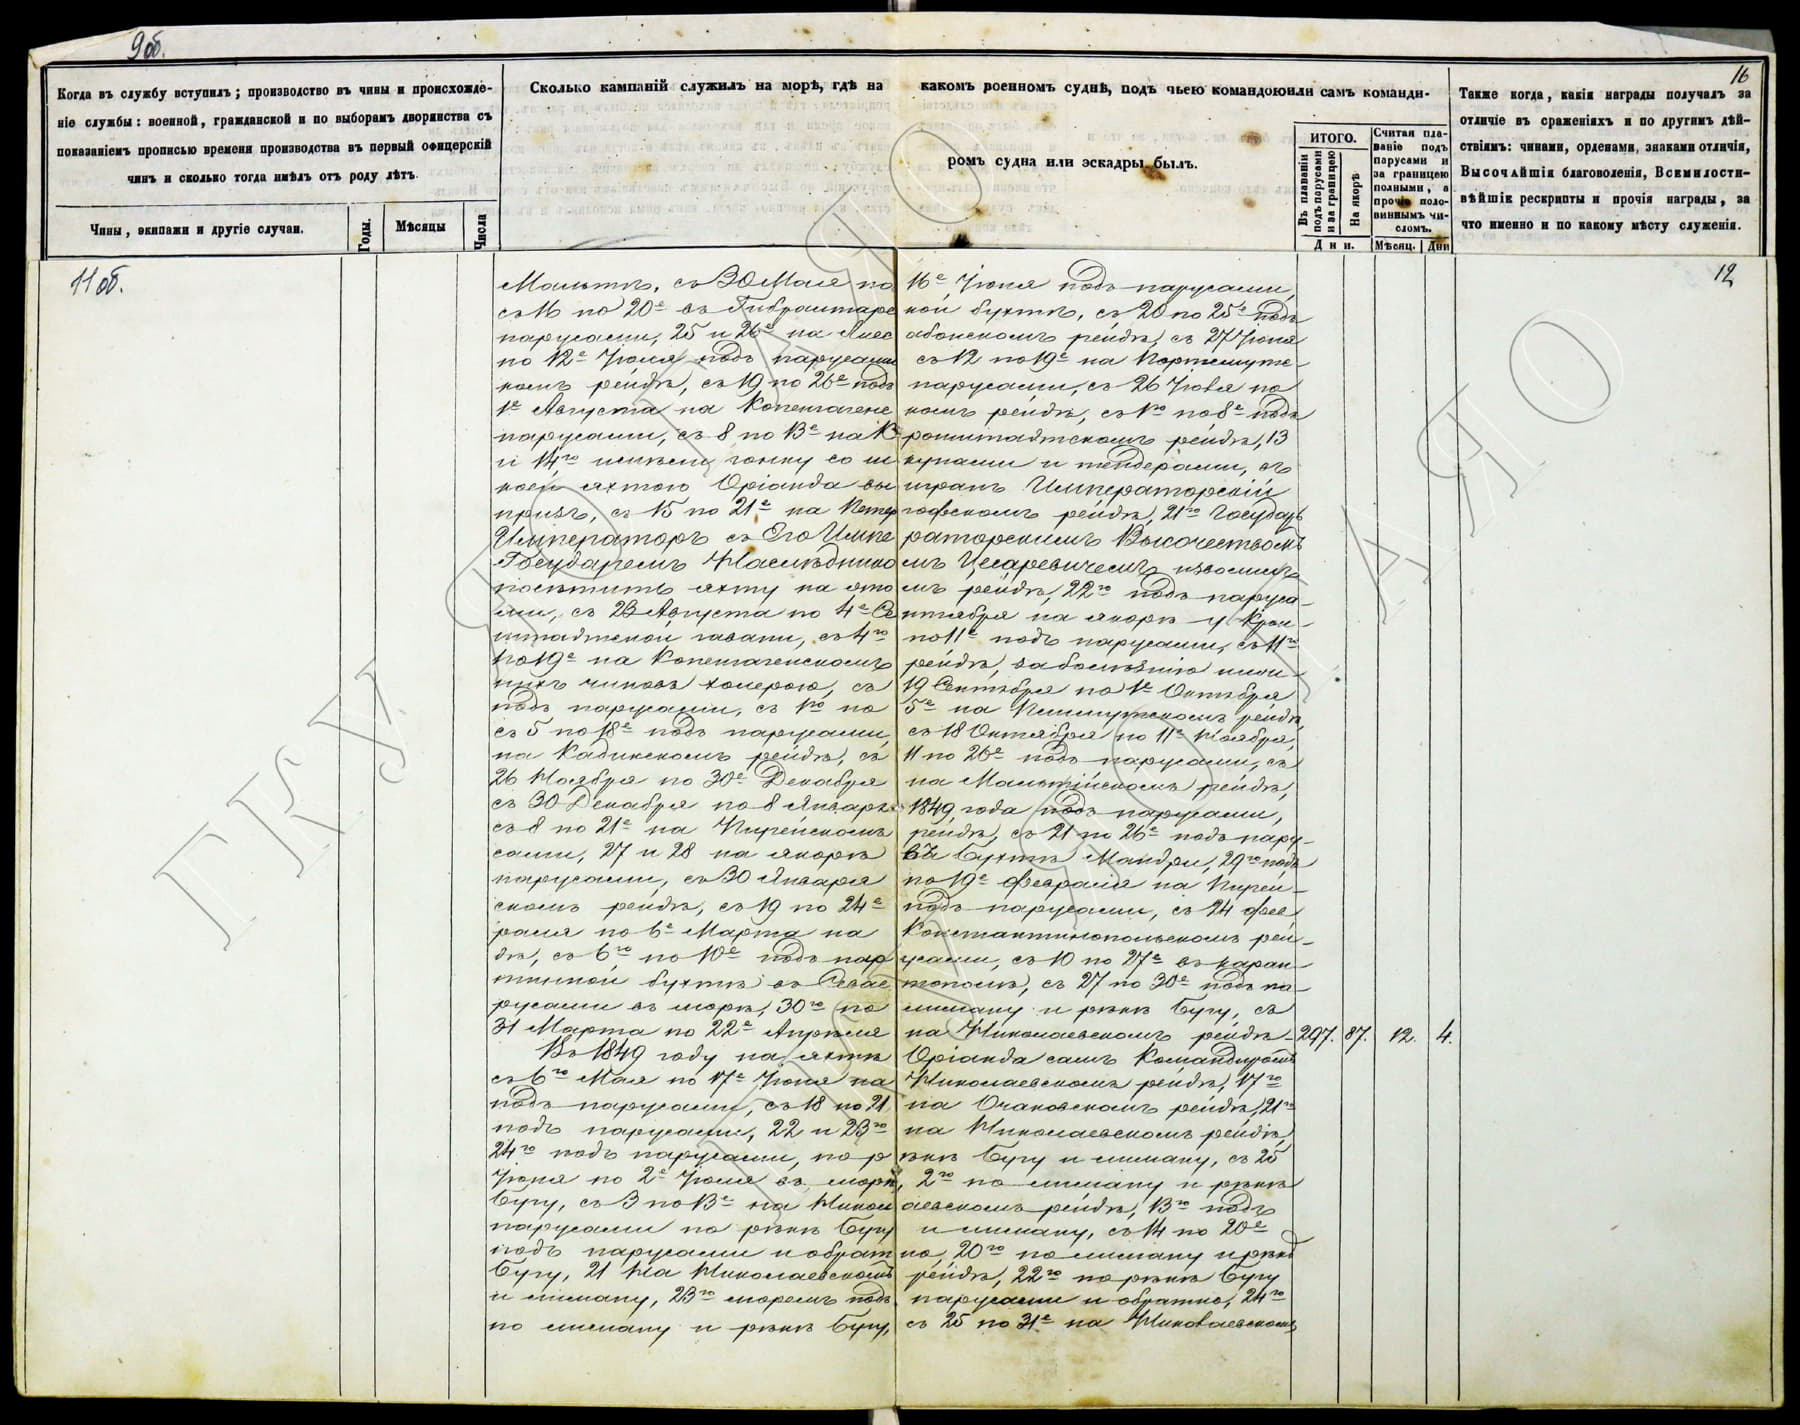 9об.
16
Когда въ службу вступилъ; производство въ чины и происхожде-
ніе службы: военной, гражданской и по выборамъ дворянства съ
показаніемъ прописью времени производства въ первый офицерскій
чинъ и сколько тогда имѣлъ отъ роду лѣтъ.
Чины, экипажи и другіе случаи.
Годы.
Мѣсяцы
Числа
Сколько кампаній служилъ на морѣ, гдѣ на какомъ военномъ суднѣ, подъ чьею командоюили самъ команди-
ромъ судна или эскадры былъ.
ИТОГО.
Въ плаваніи
подъ парусами
и за границею
На якорѣ
Дни.
Считая пла-
ваніе подъ
парусами и
за границею
полными, а
прочіе поло-
виннымъ чи-
сломъ.
Мѣсяц.
Дни
Также когда, какія награды получалъ за
отличіе въ сраженіяхъ и по другимъ дѣй-
ствіямъ: чинами, орденами, знаками отличія,
Высочайшія благоволенія, Всемилости-
вѣйшіе рескрипты и прочія награды, за
что именно и по какому мѣсту служенія.
11об.
12
Мальтѣ, съ 30 Мая по 16е Іюня подъ парусами,
съ 16 по 20е въ Гибралтарской бухтѣ, съ 20 по 25е подъ
парусами, 25 и 26е на Лиссабонскомъ рейдѣ, съ 27 Іюня
по 12е Іюля подъ парусами съ 12 по 19е на Портсмутс-
комъ рейдѣ, съ 19 по 26е подъ парусами, съ 26 Іюля по
1е Августа на Копенгагенскомъ рейдѣ, съ 1го по 8е подъ
парусами, съ 8 по 13е на Кронштадтскомъ рейдѣ, 13
и 14го имѣли гонку со шкунами и тендерами, въ
коей яхтою Оріанда выигранъ Императорскій
призъ, съ 15 по 21е на Петергофскомъ рейдѣ, 21го Государь
Императоръ съ Его Императорскимъ Высочествомъ
Государемъ Наслѣдникомъ Цесаревичемъ изволилъ
посѣтить яхту на этомъ рейдѣ, 22го подъ паруса-
ми, съ 23 Августа по 4е Сентября на якорѣ у Крон-
штадтской гавани, съ 4го по 11е подъ парусами, съ 11го
по 19е на Копенгагенскомъ рейдѣ, за болѣзнію ниж-
нихъ чиновъ холерою, съ 19 Сентября по 1е Октября
подъ парусами, съ 1го по 5е на Плимутскомъ рейдѣ,
съ 5 по 18е подъ парусами, съ 18 Октября по 11е Ноября,
на Кадикскомъ рейдѣ, съ 11 по 26е подъ парусами, съ
26 Ноября по 30е Декабря на Мальтійскомъ рейдѣ,
съ 30 Декабря по 8 Января 1849 года подъ парусами,
съ 8 по 21е на Пирейскомъ рейдѣ, съ 21 по 26е подъ пару-
сами, 27 и 28 на якорѣ въ бухтѣ Мандри, 29го подъ
парусами, съ 30 Января по 19е февраля на Пирей-
скомъ рейдѣ, съ 19 по 24е подъ парусами, съ 24 фев
раля по 6е Марта на Константинопольскомъ рей-
дѣ, съ 6го по 10е подъ парусами, съ 10 по 27е въ каран-
тинной бухтѣ въ Севастополѣ, съ 27 по 30е подъ па-
русами въ морѣ, 30го по лиману и рѣкѣ Бугу, съ
31 Марта по 22е Апрѣля на Николаевскомъ рейдѣ 297. 87. 12. 4.
Въ 1849 году на яхтѣ Оріанда самъ Командиромъ
съ 6го Мая по 17е Іюня на Николаевскомъ рейдѣ, 17го
подъ парусами, съ 18 по 21 на Очаковскомъ рейдѣ, 21го
подъ парусами, 22 и 23го на Николаевскомъ рейдѣ,
24го подъ парусами, по рѣкѣ Бугу и лиману, съ 25
Іюня по 2е Іюля въ морѣ, 2го по лиману и рѣкѣ
Бугу, съ 3 по 13е на Николаевскомъ рейдѣ, 13го подъ
парусами по рѣкѣ Бугу и лиману, съ 14 по 20е
подъ парусами и обратно, 20го по лиману и рѣкѣ
Бугу, 21 На Николаевскомъ рейдѣ, 22го по рѣкѣ Бугу
и лиману, 23го моремъ подъ парусами и обратно, 24го
по лиману и рѣкѣ Бугу, съ 25 по 31е на Николаевскомъ
ГКУ ЯО ГАЯО